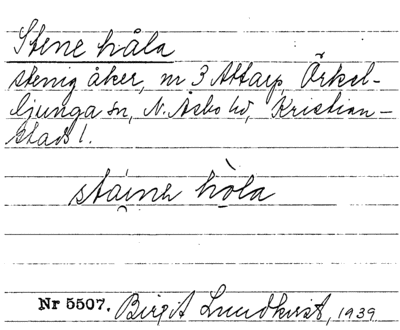 Stene håla
stenig åker, nr 3 Attarp, Örkel-
ljunga sn, N. Åsbo hd, Kristian-
stads l.
stainə hòla
Nr 5507. Birgit Lundkvist, 1939